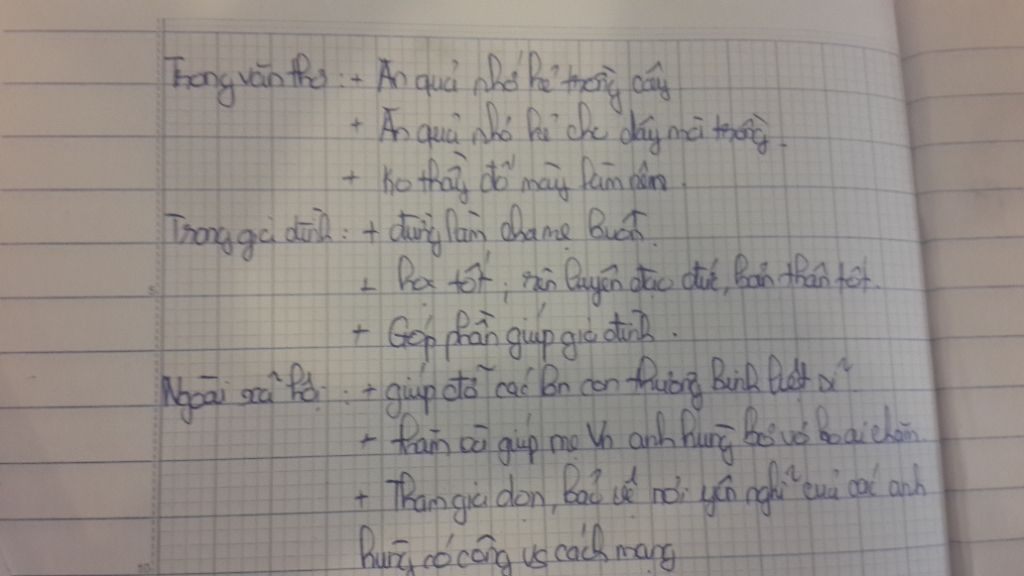 Trong văn thơ : + Ăn quả nhớ kẻ trồng cây
+ Ăn quả nhớ kẻ cho dây mà trồng.
+ Ko thầy đố mày làm nên.
Trong gia đình : + đừng làm cha mẹ buồn.
+ học tốt, rèn luyện đạo đức, bản thân tốt.
+ Góp phần giúp gia đình.
Ngoài xã hội : + giúp đỡ các bn con thương binh liệt sĩ
+ thăm và giúp mẹ Vn anh hùng bơ vơ ko ai chăm.
+ Tham gia dọn, bảo vệ nơi yên nghỉ của các anh
hùng có công vs cách mạng